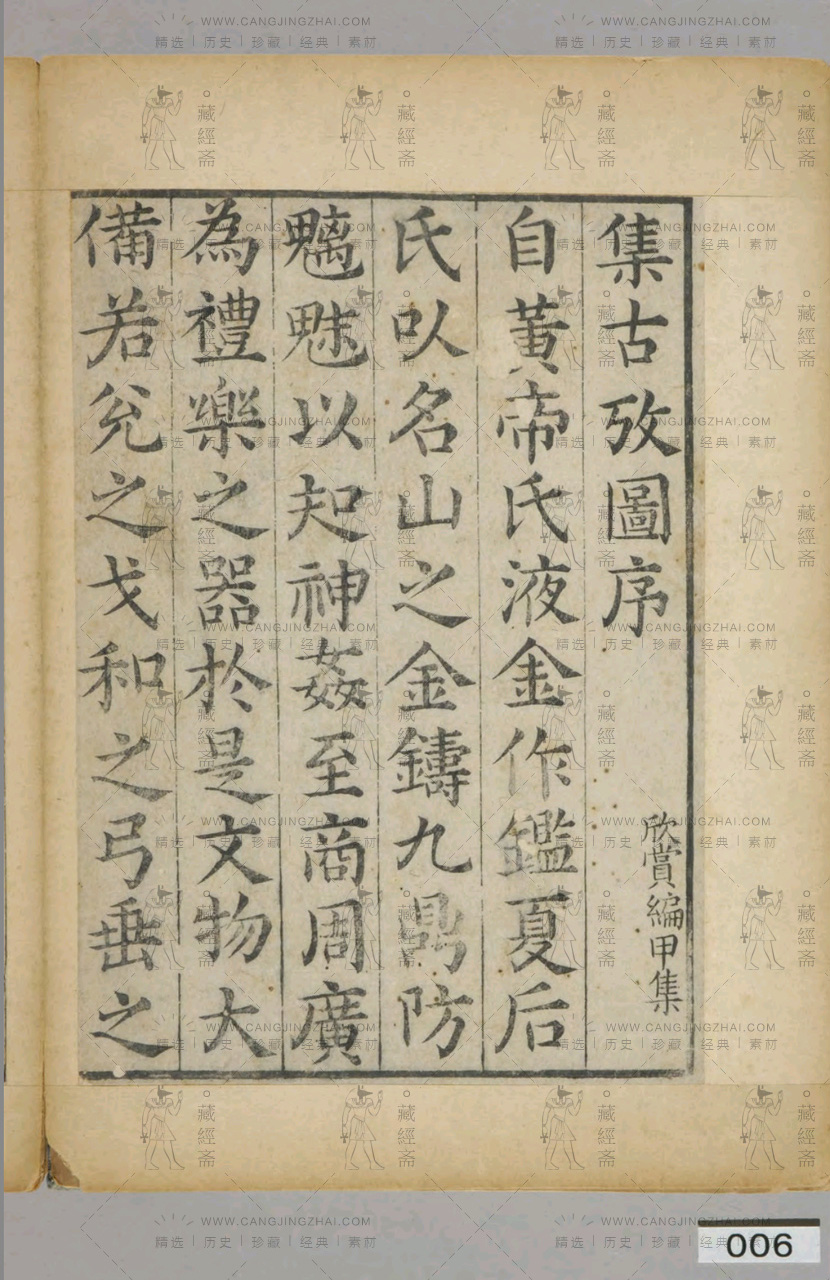 集古攷圖序
欣賞編甲集
自黃帝氏液金作鑑夏后
氏以名山之金鑄九鼎防
魑魅以起神姦至商周廣
為禮樂之器於是文物大
備若兊之戈和之弓垂之
006
WWW.CANGJINGZHAI.COM
精选 | 历史 | 珍藏 | 经典 | 素材
藏經斋